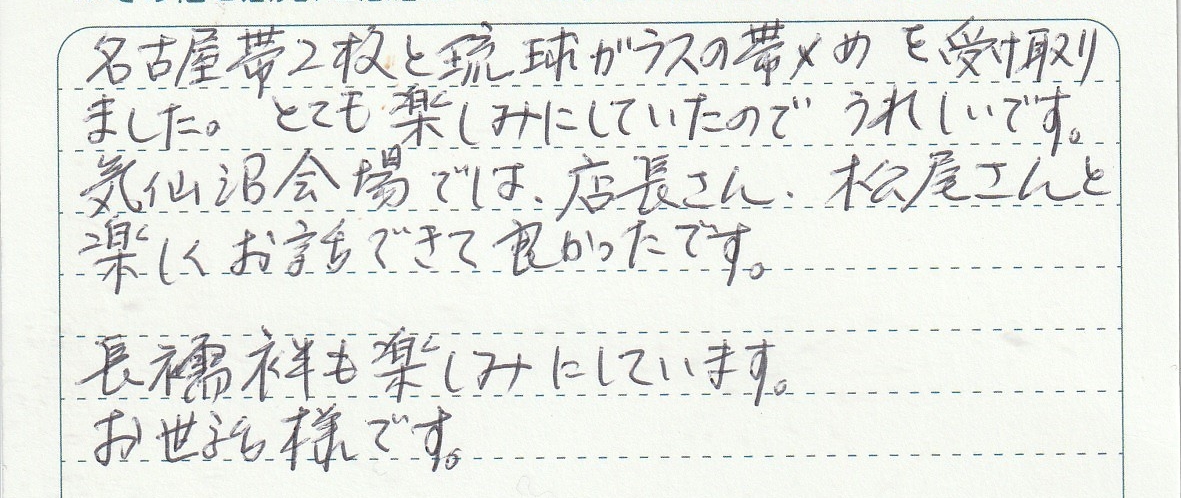 名古屋帯2枚と琉球ガラスの帯〆めを受け取り
ました。とても楽しみにしていたのでうれしいです。
気仙沼会場では、店長さん、松尾さんと
楽しくお話できて良かったです。
長襦袢も楽しみにしています。
お世話様です。